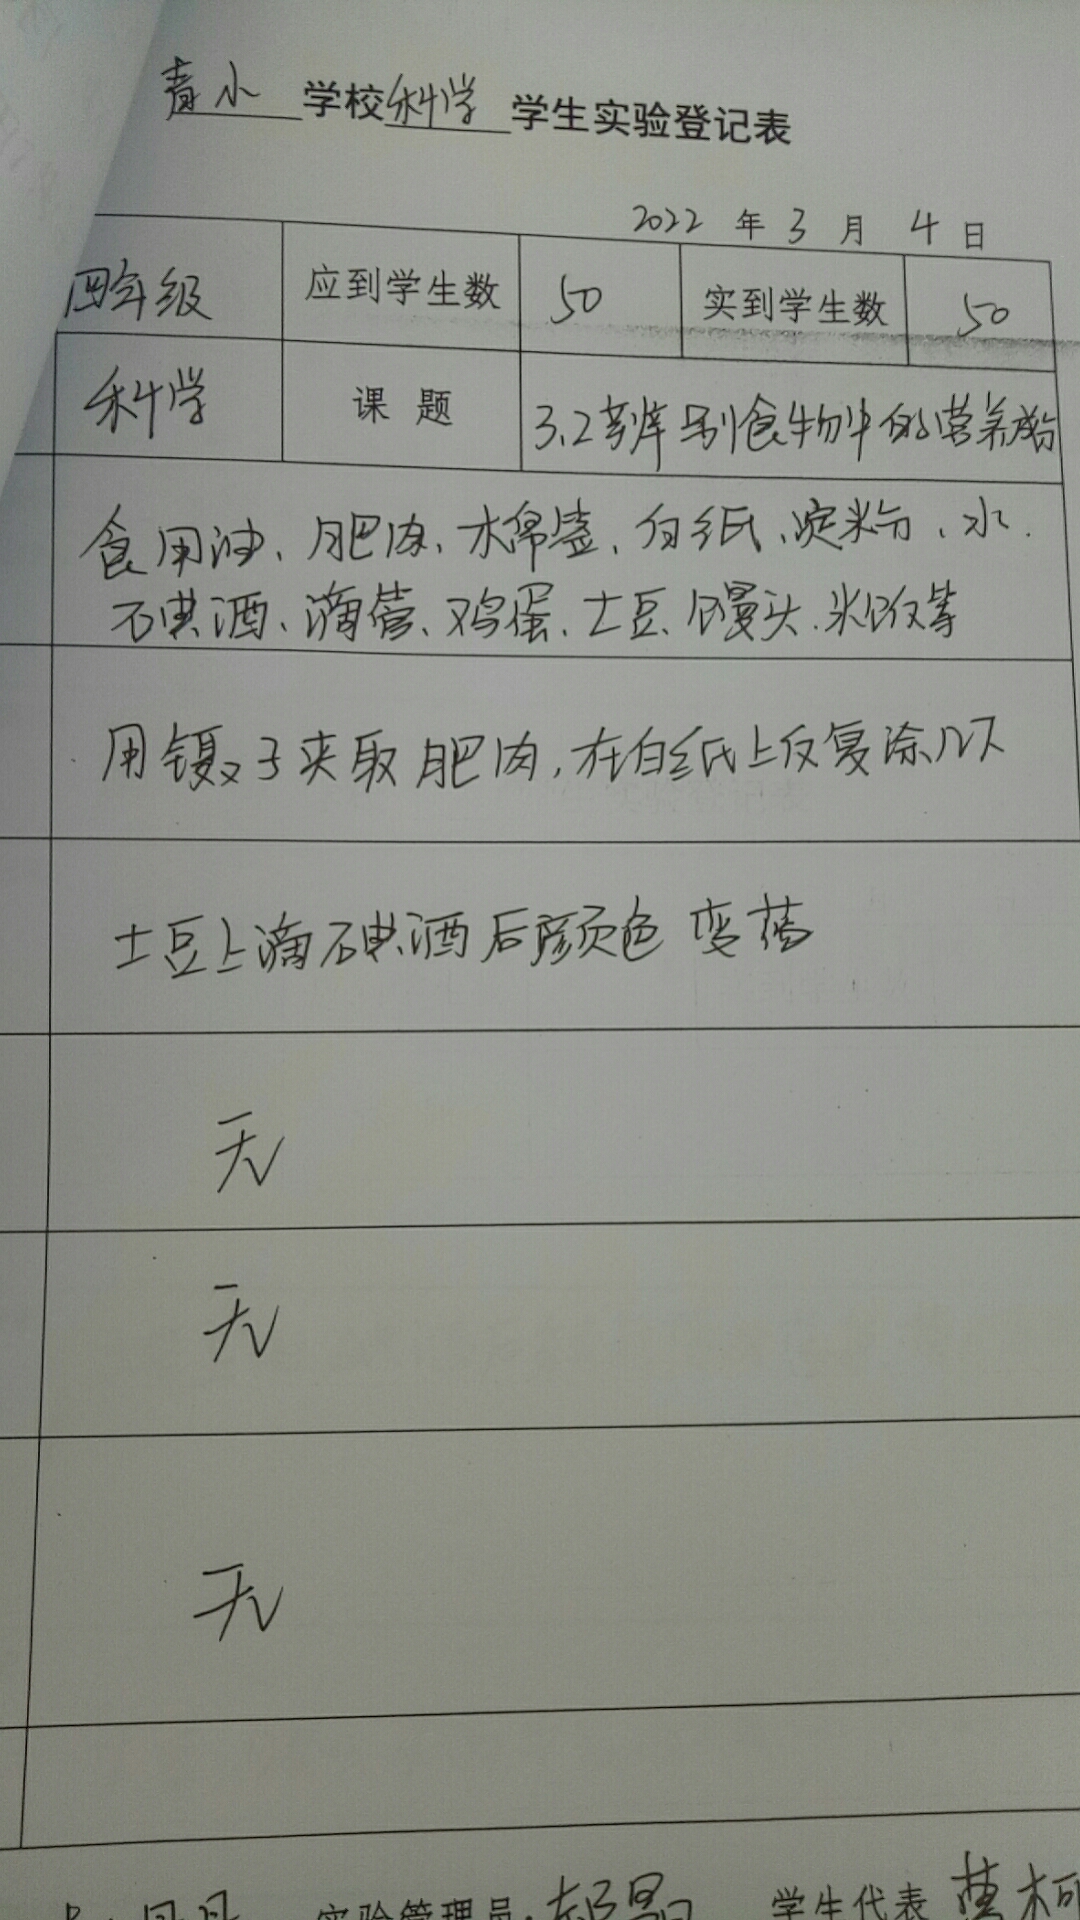 青小 学校 科学 学生实验登记表
2022 年 3 月 4 日
四年级 应到学生数 50 实到学生数 50
科学 课 题 3.2辨别食物中的营养成份
食用油、肥肉、木棉签、白纸、淀粉、水.
碘酒、滴管、鸡蛋、土豆、馒头、米饭等
用镊子夹取肥肉,在白纸上反复涂几下
土豆上滴碘酒后颜色变蓝
无
无
无
实验管理员: 学生代表